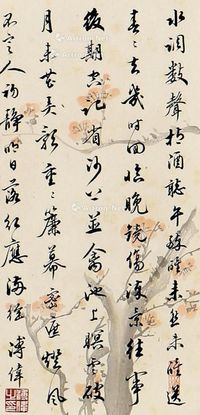 水調數聲持酒聽午醉醒來愁未醒送
春〻去幾時回臨晚鏡傷流景往事
後期空記省沙上並禽池上瞑雲破
月來花弄影重〻簾幕密遮燈風
不定人初靜明日落紅應滿徑 溥偉